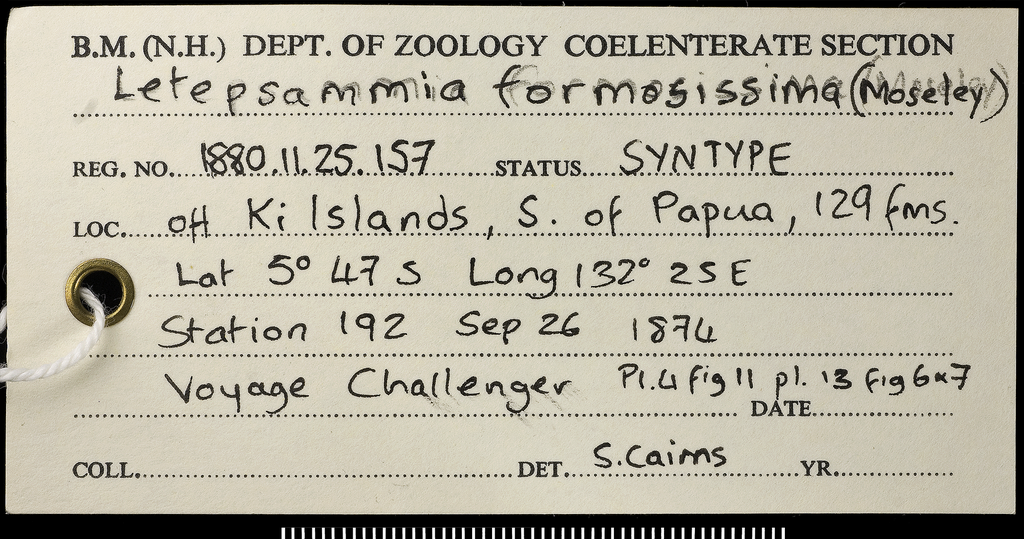 B.M. (N.H.) DEPT. OF ZOOLOGY COELENTERATE SECTION
Letepsammia formosissima (Moseley)
REG. NO. 1880.11.25.157 STATUS SYNTYPE
LOC. off Ki Islands, S. of Papua, 129 fms.
Lat 5° 47 S Long 132° 25 E
Station 192 Sep 26 1874
Voyage Challenger Pl.4 fig 11 pl. 13 fig 6 x 7
DATE
COLL. DET. S.Cairns YR.